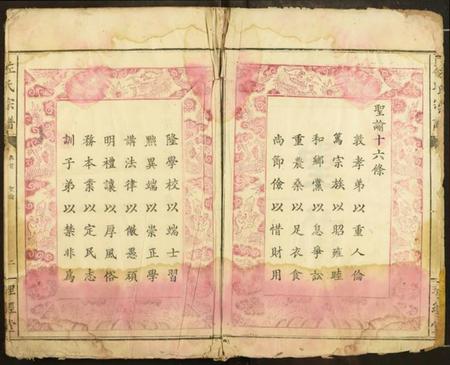 聖諭十六條
敦孝弟以重人倫
篤宗族以昭雍睦
和鄉黨以息爭訟
重農桑以足衣食
尚節儉以惜財用
隆學校以端士習
黜異端以崇正學
講法律以儆愚頑
明禮讓以厚風俗
務本業以定民志
訓子弟以禁非為
氏宗譜
二